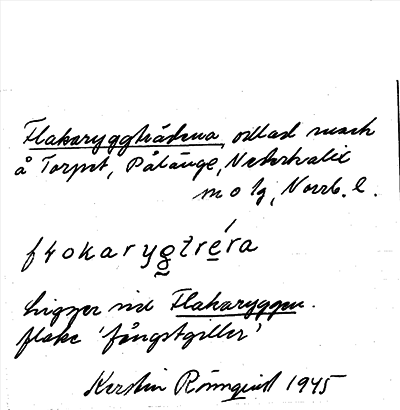 Flakaryggträdena, odlad mark
å Torpet, Pålänge, Nederkalix
m o lg, Norrb. l.
flokarygtréra
ligger vid Flakaryggen.
flake 'fångstgiller'
Kerstin Rönnqvist 1945